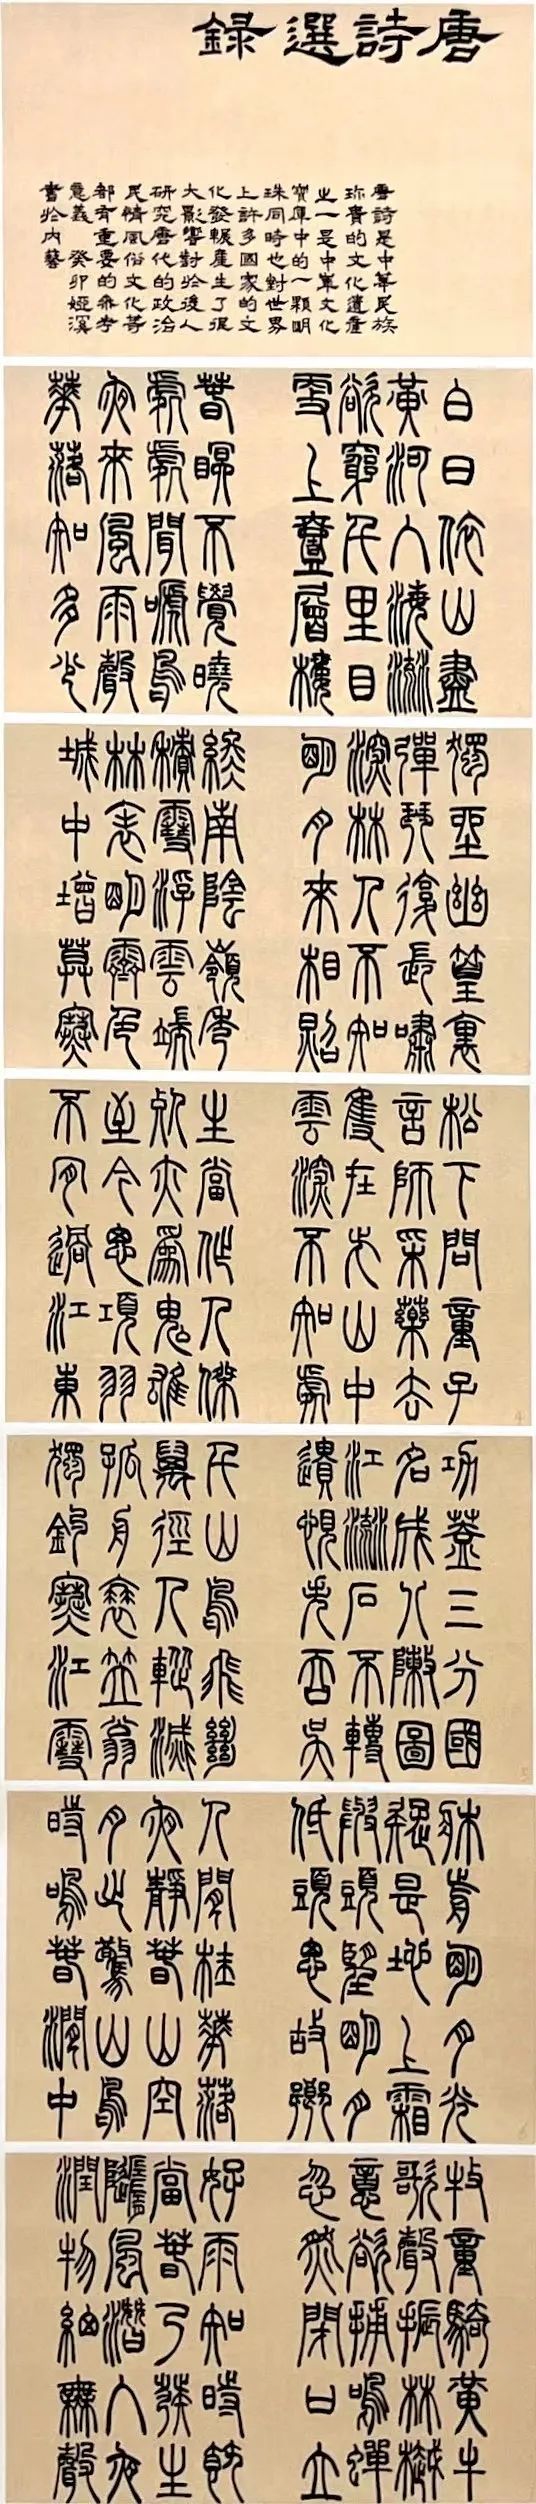 唐詩選錄
唐詩是中華民族
珍貴的文化遺產
之一是中華文化
寶庫中的一顆明
珠同時也對世界
上許多國家的文
化發展產生了很
大影響對於後人
研究唐代的政治
民情風俗文化等
都有重要的參考
意義 癸卯婭溪
書於內藝
白日依山盡
黃河入海流
欲窮千里目
更上一層樓
春眠不覺曉
處處聞啼鳥
夜來風雨聲
華落知多少
獨坐幽篁裏
彈琴復長嘯
深林人不知
明月來相照
終南陰嶺秀
積雪浮雲端
林表明霽色
城中增暮寒
松下問童子
言師采藥去
隻在此山中
雲深不知處
生當作人傑
死亦為鬼雄
至今思項羽
不肯過江東
功蓋三分國
名成八陣圖
江流石不轉
遺恨失吞吳
千山鳥飛絕
萬徑人蹤滅
孤舟蓑笠翁
獨釣寒江雪
牀前明月光
疑是地上霜
舉頭望明月
低頭思故鄉
人閒桂華落
夜靜春山空
月出驚山鳥
時鳴春澗中
牧童騎黃牛
歌聲振林樾
意欲捕鳴蟬
忽然閉口立
好雨知時節
當春乃發生
隨風潛入夜
潤物細無聲